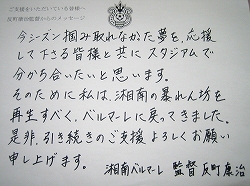 ご支援をいただいている皆様へ
反町康治監督からのメッセージ
今シーズン掴み取れなかった夢を、応援
して下さる皆様と共にスタジアムで
分かち合いたいと思います。
そのために私は、湘南の暴れん坊を
再生すべく、ベルマーレに戻ってきました。
是非、引き続きのご支援よろしくお願い
申し上げます。
湘南ベルマーレ 監督 反町康治